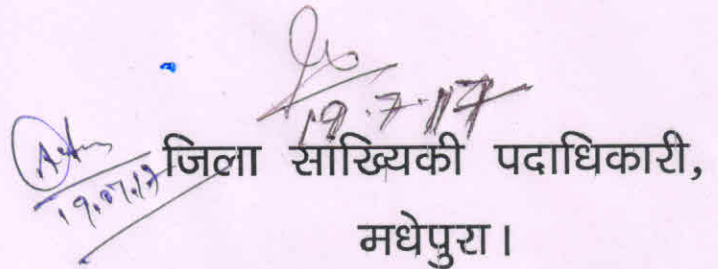 19.7.17
19.07.17
जिला साख्यिकी पदाधिकारी,
मधेपुरा।